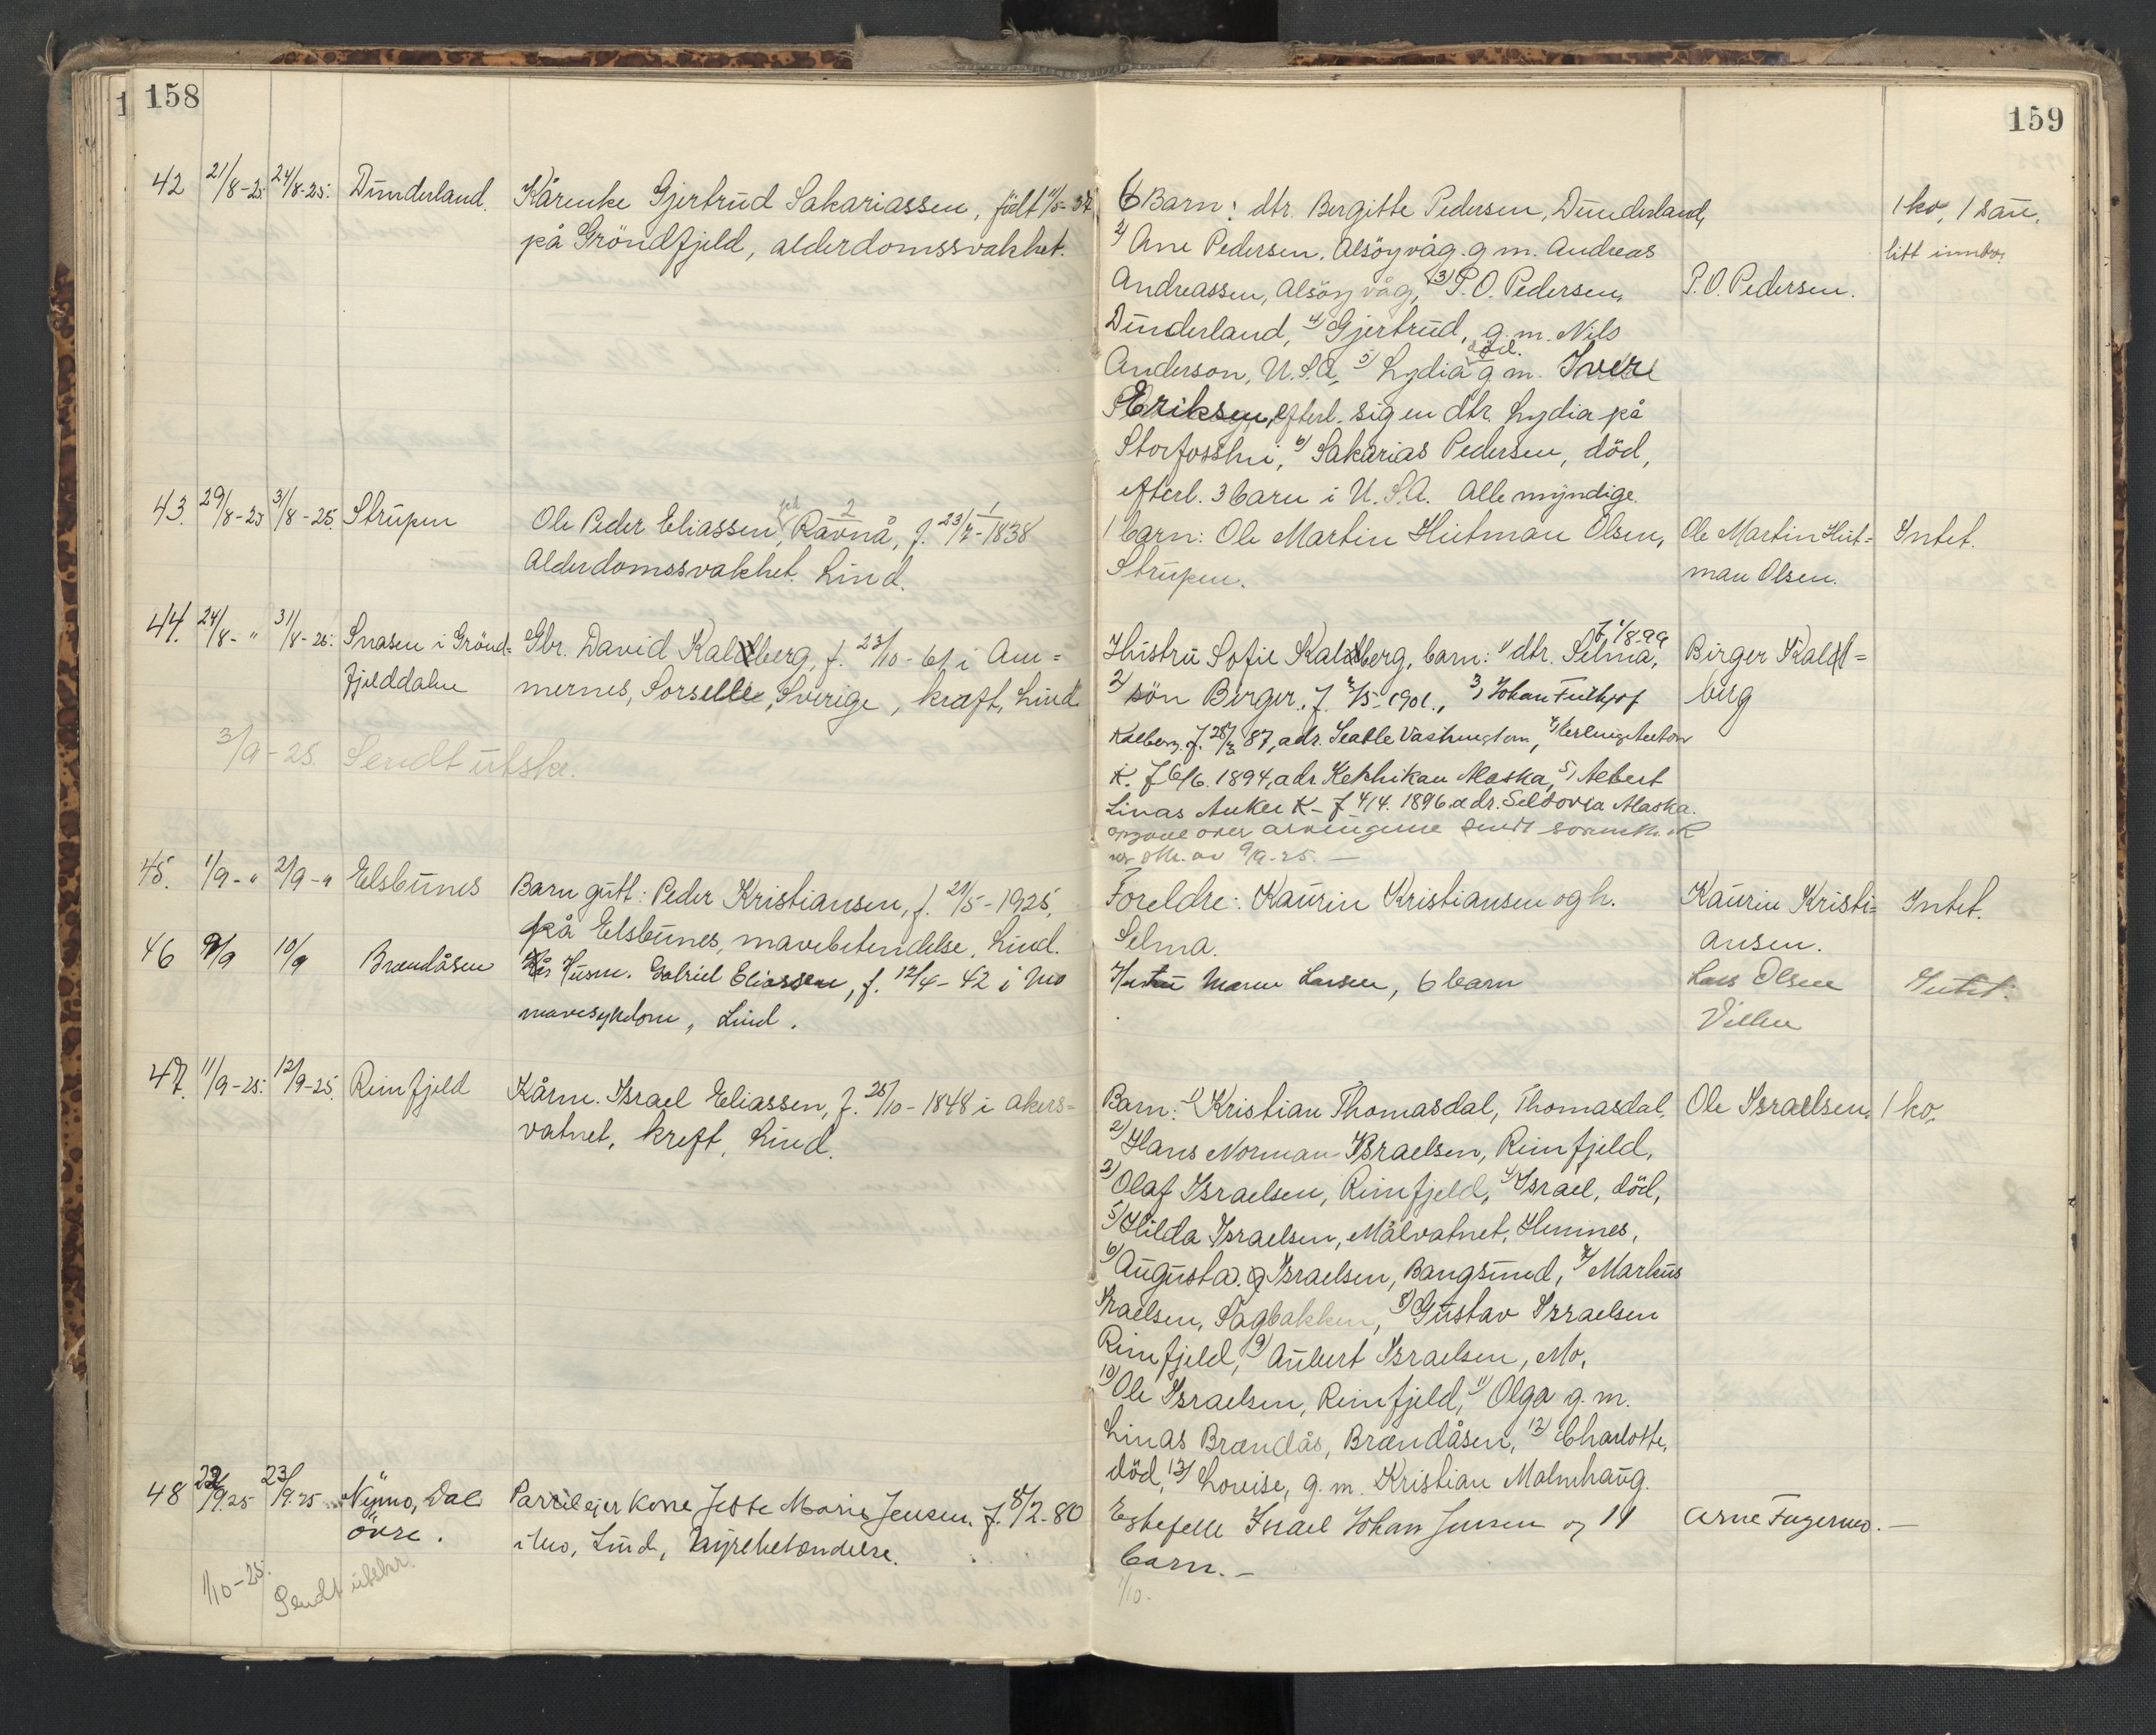 158
159
42 21/8-25. 24/8-25. Dunderland. Kårenke Gjertrud Sakariassen, födt 11/5-37
på Gröndfjeld, alderdomssvakhet.
6 Barn: dtr. Bergitte Pedersen, Dunderland,
1 ko, 1 sau,
2) Ane Pedersen, Alsöyvåg. g. m. Andreas
litt innbo.
Andreassen, Alsöyvåg, 3) P.O. Pedersen,
P.O. Pedersen.
Dunderland, 4) Gjertrud, g. m. Nils
Anderson, U.S.A, 5) Lydia död. g. m. Iver
Eriksen, efterl. sig en dtr. Lydia på
Storfosshei, 6) Sakarias Pedersen, död,
efterl. 3 barn i U.S.A. Alle myndige.
43. 29/8-25 31/8-25. Strupen Ole Peder Eliassen, Ravnå, f. 23/7-1838
Alderdomssvakhet. Lind.
1 barn: Ole Martin Hitman Olsen, Ole Martin Hit= Intet.
Strupen. man Olsen.
44. 24/8- " 31/8-25. Snasen i Grönd= Gbr. David Kalberg, f. 23/10-61 i Am=
fjelddalen mernes, Sorselle, Sverige, kræft, Lind.
Hustru Sofie Kalberg, barn: 1) dtr. Selma, f. 1/8-99 Birger Kal=
2) sön Birger, f. 2/5-1901., 3) Johan Fridthjof berg
Kalberg f. 28/3 87, adr. Seatle Vashington, 4) Herluig Anton
K. f 6/6. 1894, adr. Ketchikan Alaska, 5) Albert
Linas Anker K- f 4/4. 1896 adr. Seldovia Alaska.
opgave over arvingerne sendt sorenskr. R
av 9/9-25. —
3/9-25. Sendt utskr.
45. 1/9- " 2/9- " Elsbunes Barn gutt: Peder Kristiansen, f. 29/5-1925,
på Elsbunes, mavebetendelse. Lind.
Foreldre: Kaurin Kristiansen og h. Kaurin Kristi= Intet.
Selma. ansen.
46 9/9 10/9 Brændåsen Husm. Gabriel Eliassen, f. 12/4-42 i Mo
mavesykdom, Lind.
Hustru Maren Larsen, 6 barn Lars Olsen Intet.
47. 11/9-25. 12/9-25. Reinfjeld Kårm. Israel Eliassen, f. 25/10-1848 i Akers=
vatnet, kreft, Lind.
Barn: 1) Kristian Thomasdal, Thomasdal, Ole Israelsen. 1 ko.
2) Hans Norman Israelsen, Reinfjeld,
3) Olaf Israelsen, Reinfjeld, 4) Israel, död,
5) Hilda Israelsen, Målvatnet, Hemnes,
6) Augusta Israelsen, Bangsund, 7) Markus
Israelsen, Sagbakken, 8) Gustav Israelsen
Reinfjeld, 9) Aubert Israelsen, Mo,
10) Ole Israelsen, Reinfjeld, 11) Olga g. m.
Linas Brændås, Brændåsen, 12) Charlotte,
död, 13) Lovise, g. m. Kristian Malmhaug.
48 22/9.25 23/9.25 Nymo, Dal Parcileier kone Jette Marie Jensen. f. 8/2-80
övre. i Mo, Lind, Nyrebetændelse.
Egtefelle Israel Johan Jensen og 11 Arne Fagermo. —
barn. —
1/10-25. Sendt utskr.
1/10.